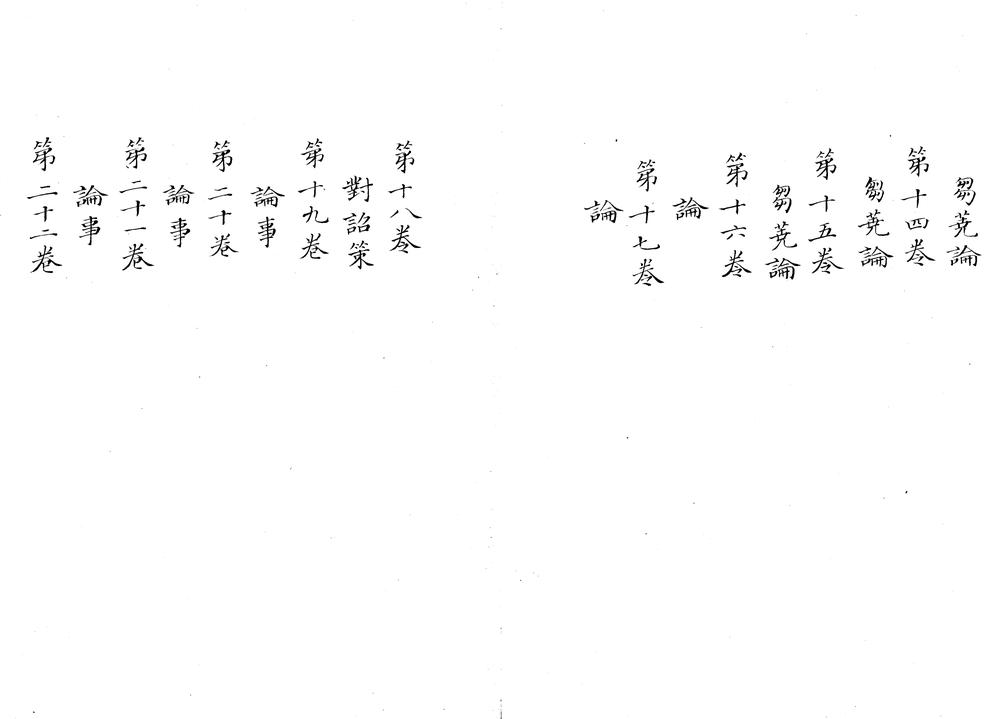 芻蕘論
第十四卷
芻蕘論
第十五卷
芻蕘論
第十六卷
論
第十七卷
論
第十八卷
對詔策
第十九卷
論事
第二十卷
論事
第二十一卷
論事
第二十二卷